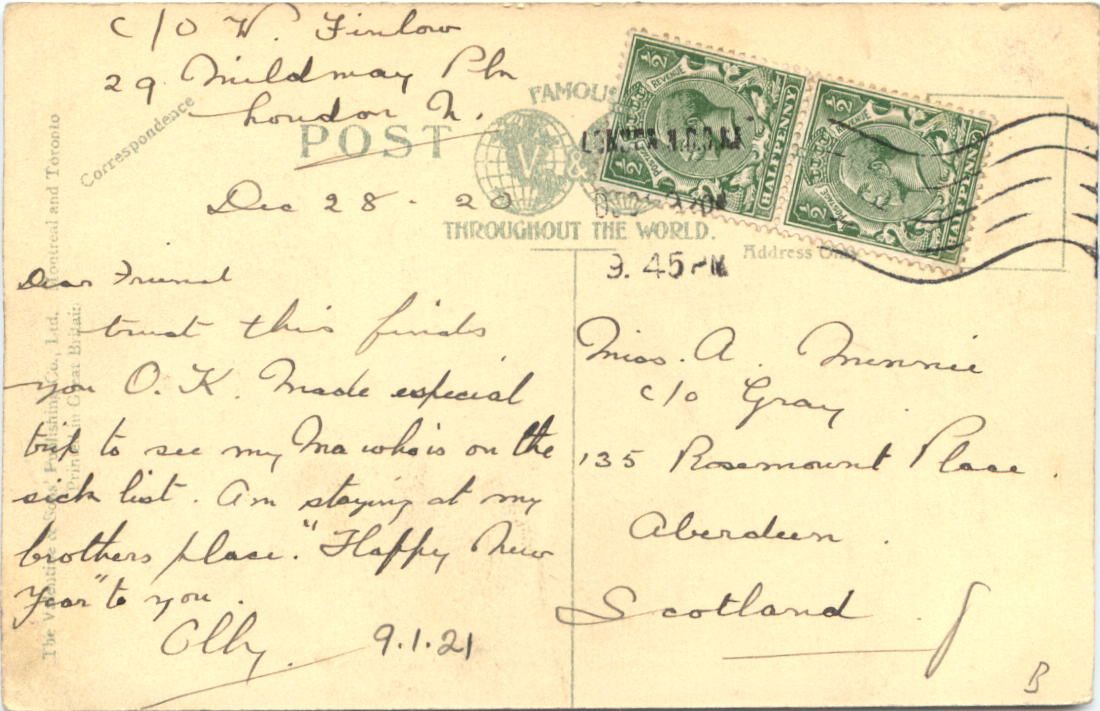 c/o W. Finlow
29 Mildmay
London N.
Dec 28 - 20
Correspondence
POST
FAMOUS
V. &
THROUGHOUT THE WORLD.
Address Only
LONDON
3. 45 PM
½ REVENUE ½
POSTAGE
HALFPENNY
½ REVENUE ½
POSTAGE
HALFPENNY
The Valentine & Sons' Publishing Co., Ltd. Montreal and Toronto
Printed in Great Britain
Dear Friend
trust this finds
you O.K. Made especial
trip to see my Ma who is on the
sick list. Am staying at my
brothers place. "Happy New
Year" to you.
9.1.21
Miss. A. Minnie
c/o Gray.
135 Rosemount Place.
Aberdeen.
Scotland
B